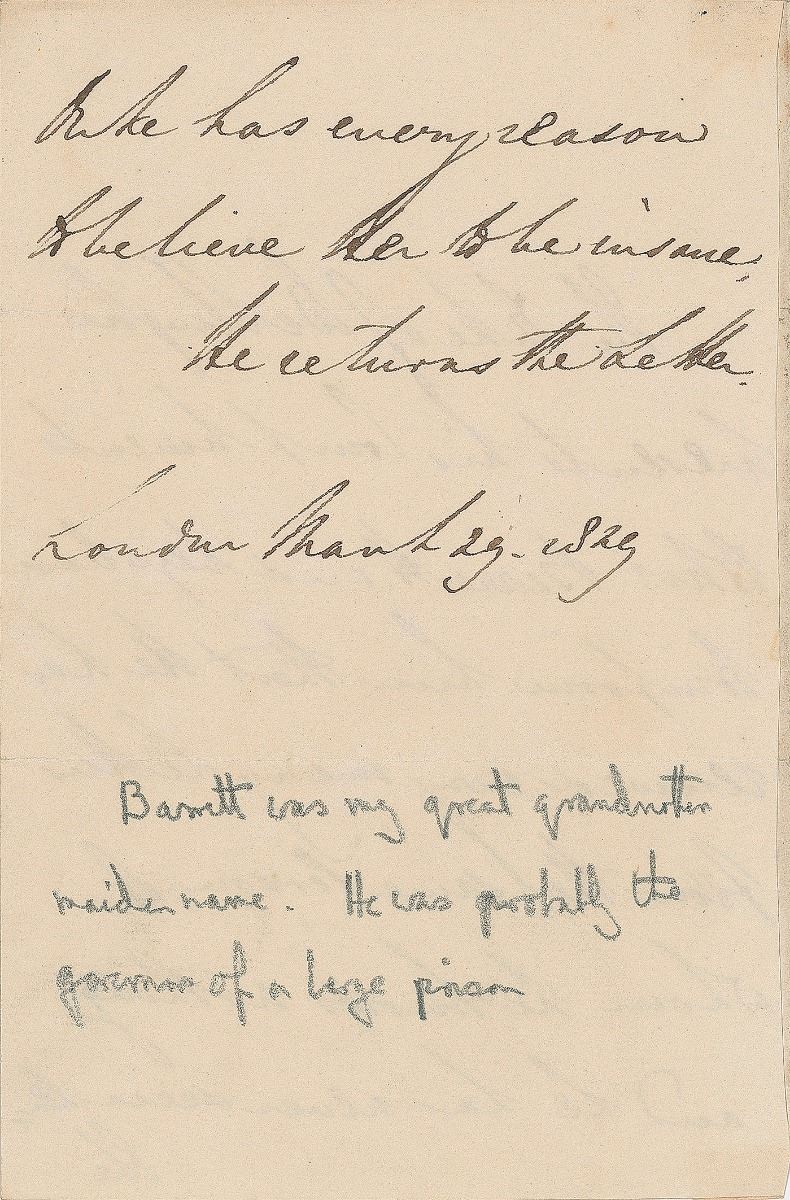 Duke has every reason
to believe Her to be insane.
He returns the Letter.
London March 29. 1829
Barrett was my great grandmother
maiden name. He was probably the
governor of a large prison